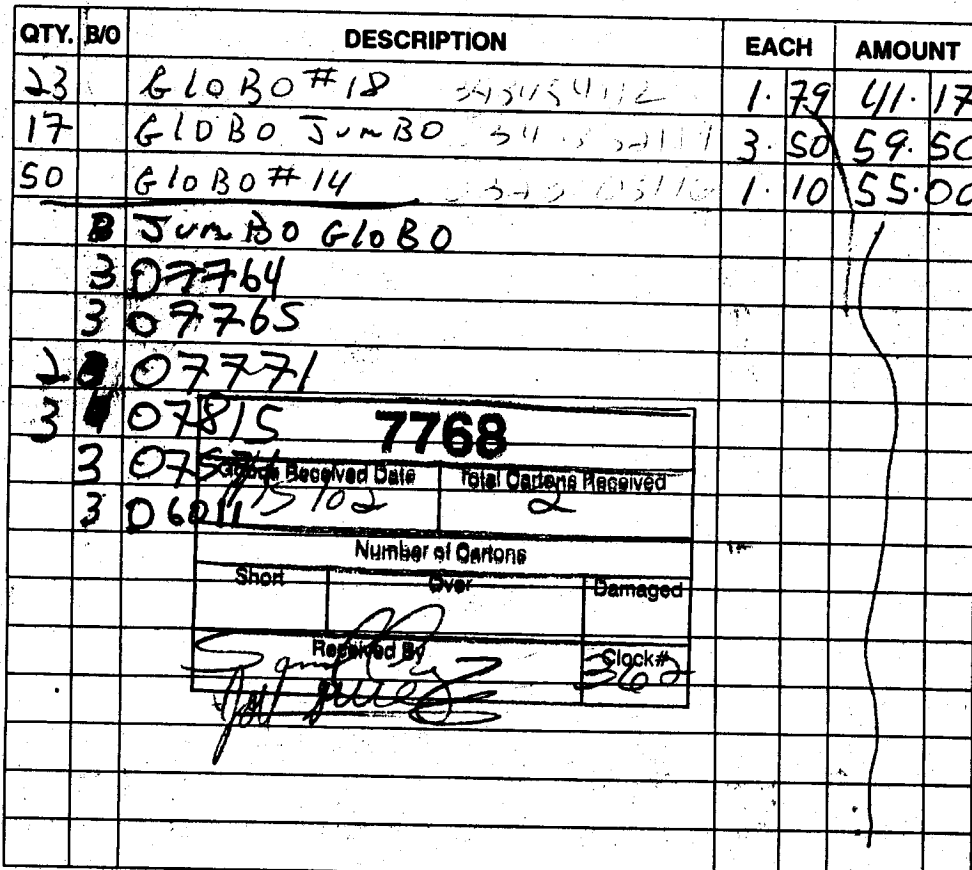 QTY. B/O DESCRIPTION EACH AMOUNT
23 GloBO #18 1.79 41.17
17 GlOBO JumBO 3.50 59.50
50 GloBO #14 1.10 55.00
B JumBO GloBO
3 07764
3 07765
2 07771
3 07815
7768
3
Goods Received Date Total Cartons Received
15/02 2
3 06011
Number of Cartons
Short Over Damaged
Received By Clock#
362